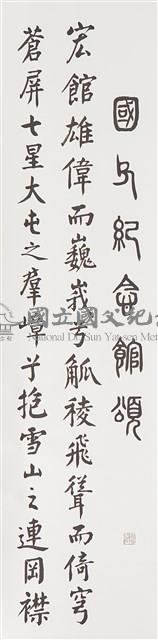 國父紀念館頌
宏館雄偉而巍峩兮觚稜飛聳而倚穹
蒼屏七星大屯之羣嶂兮挹雪山之連岡襟
國立國父紀
National Dr. Sun Yat-sen Mem